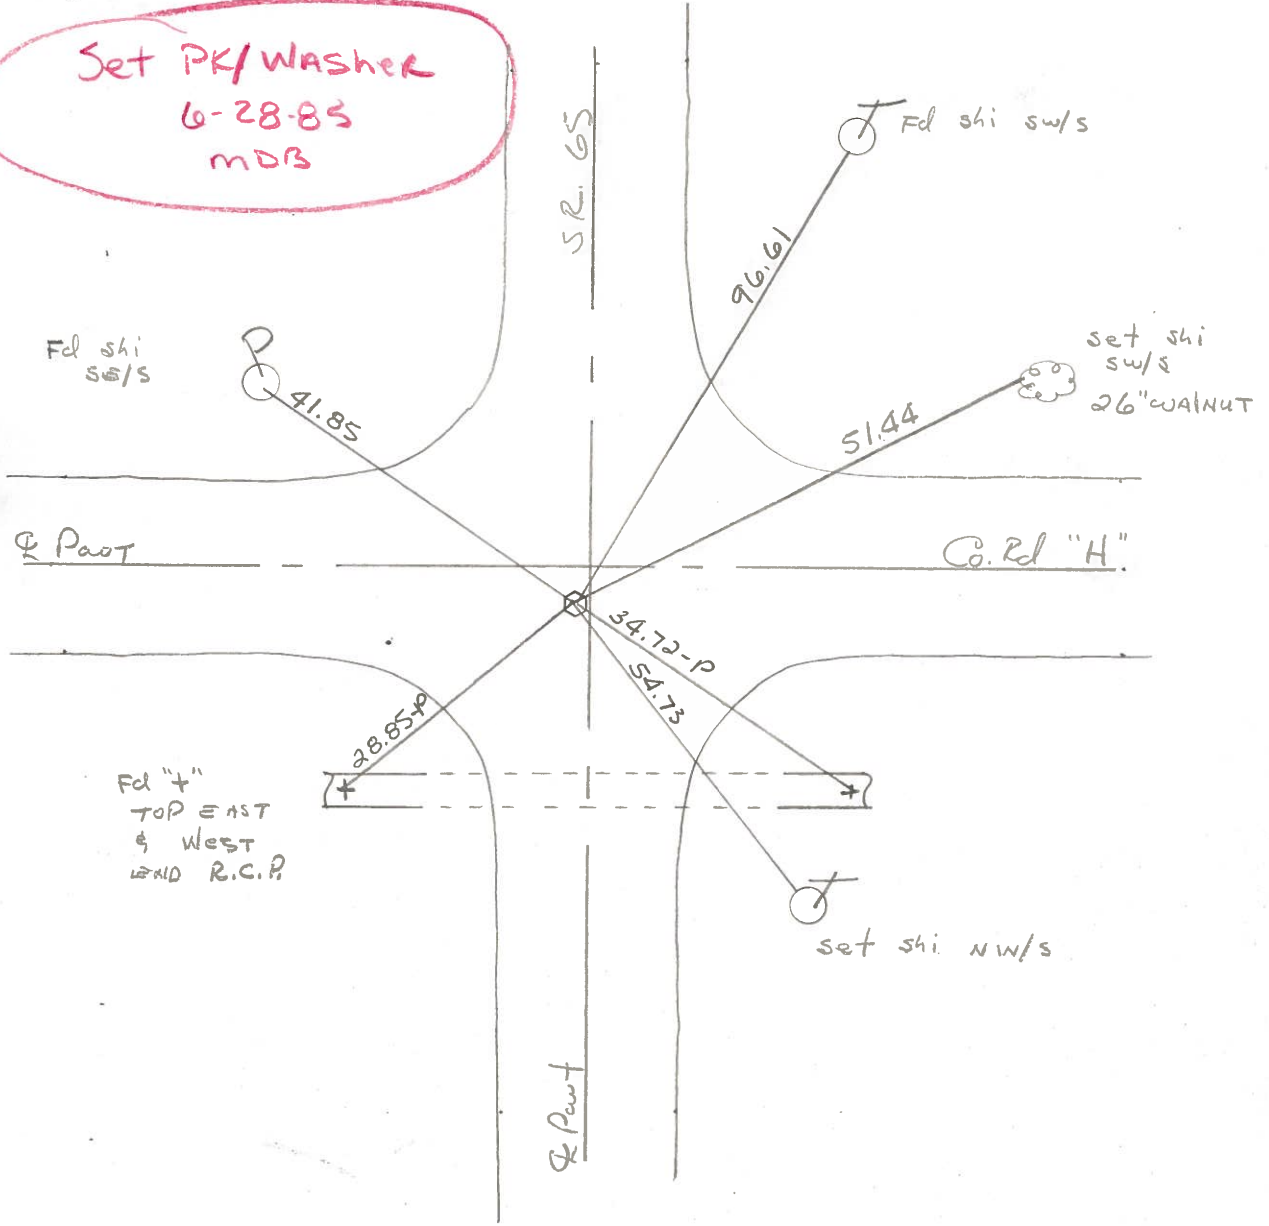 Set PK/WASher
6-28-85
MDB
S.R. 65
Fd shi SW/S
96.61
Fd shi
SE/S
41.85
set shi
SW/S
26" WAlNUT
51.44
℄ Pavt
Co. Rd "H"
34.72-P
54.73
28.85-P
Fd "+"
TOP EAST
& WEST
END R.C.P.
set shi NW/S
℄ Pavt